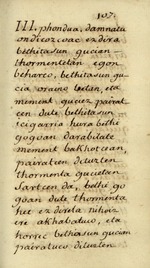 107.
III. phondua, damnatu
ondicozcoac ezdira
bethitasun gucian
thormentetan egon
beharco, bethitasun gu
cia oraino betan, eta
mement guciez pairat
cen dute bethitasun
icigarria hura bethi
goguan darabilate
mement bakhotcean
pairatcen dituzten
thormenta gucietan
sartcen da, bethi go
goan dute thormenta
hec ez direla nihoiz
ere akhabatuco, eta
horrec bethitasun gucian
pairatuco dituzten